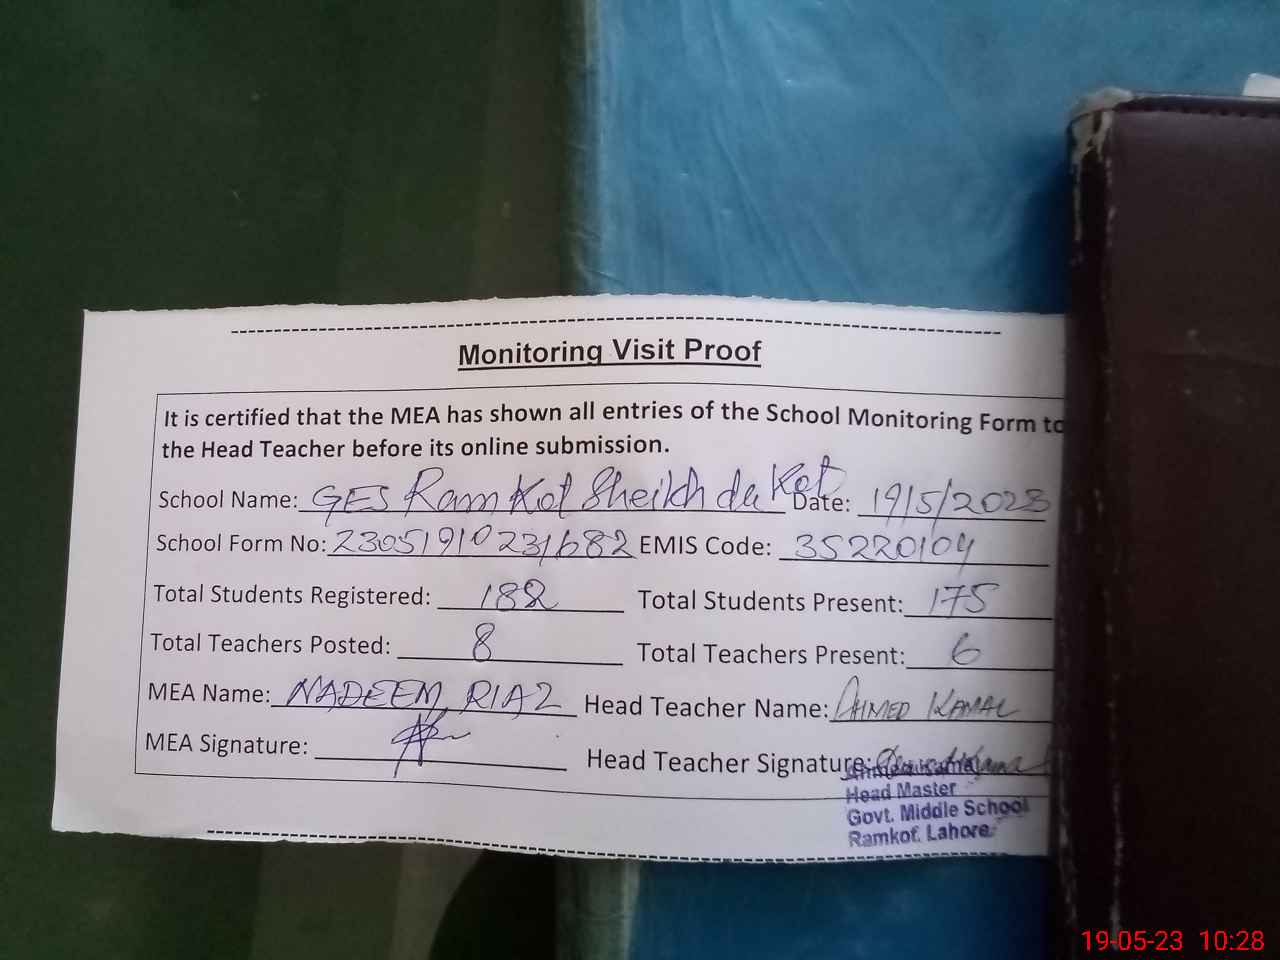 Monitoring Visit Proof
It is certified that the MEA has shown all entries of the School Monitoring Form to
the Head Teacher before its online submission.
School Name: GES Ram Kot Sheikh da Kot Date: 19/5/2023
School Form No: 23051910231682 EMIS Code: 35220104
Total Students Registered: 188 Total Students Present: 175
Total Teachers Posted: 8 Total Teachers Present: 6
MEA Name: NADEEM RIAZ Head Teacher Name: AHMED KAMAL
MEA Signature: Head Teacher Signature:
Ahmed Kamal
Head Master
Govt. Middle School
Ramkot. Lahore
19-05-23 10:28